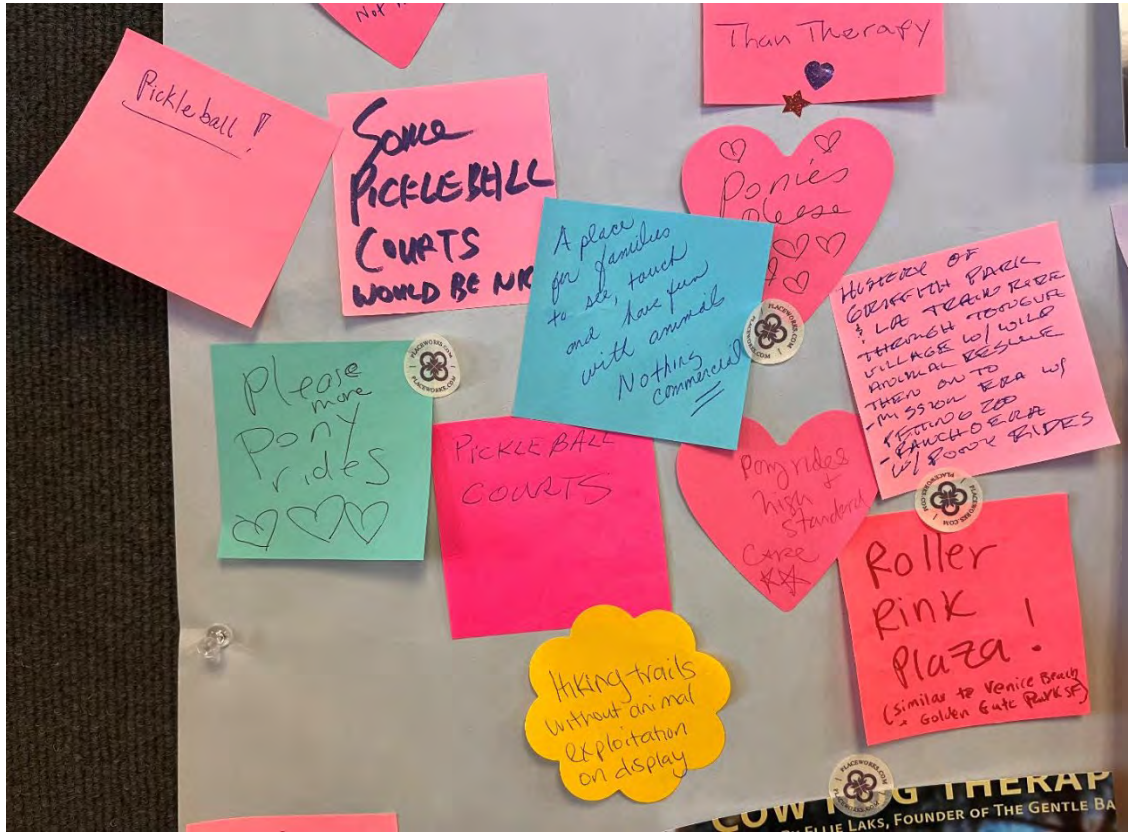 Not
Than Therapy
Pickleball!
Some
PICKLEBALL
COURTS
WOULD BE
Ponies
please
A place
for families
to see, touch
and have fun
with animals
Nothing
commercial
HISTORY OF
GRIFFITH PARK
& LA TRAIN RIDE
THROUGH TONGUE
VILLAGE W/ WILD
ANIMAL RESCUE
THEN ON TO
-MISSION ERA W/
PETTING ZOO
-RANCHO ERA
W/ PONY RIDES
PLACEWORKS.COM
PLACEWORKS.COM
Please
more
pony
rides
PICKLEBALL
COURTS
Pony rides
high
standard
care
PLACEWORKS.COM
PLACEWORKS.COM
Roller
Rink
Plaza!
(similar to Venice Beach
+ Golden Gate Park SF)
Hiking trails
without animal
exploitation
on display
PLACEWORKS.COM
COW HUG THERAP
ELLIE LAKS, FOUNDER OF THE GENTLE BA